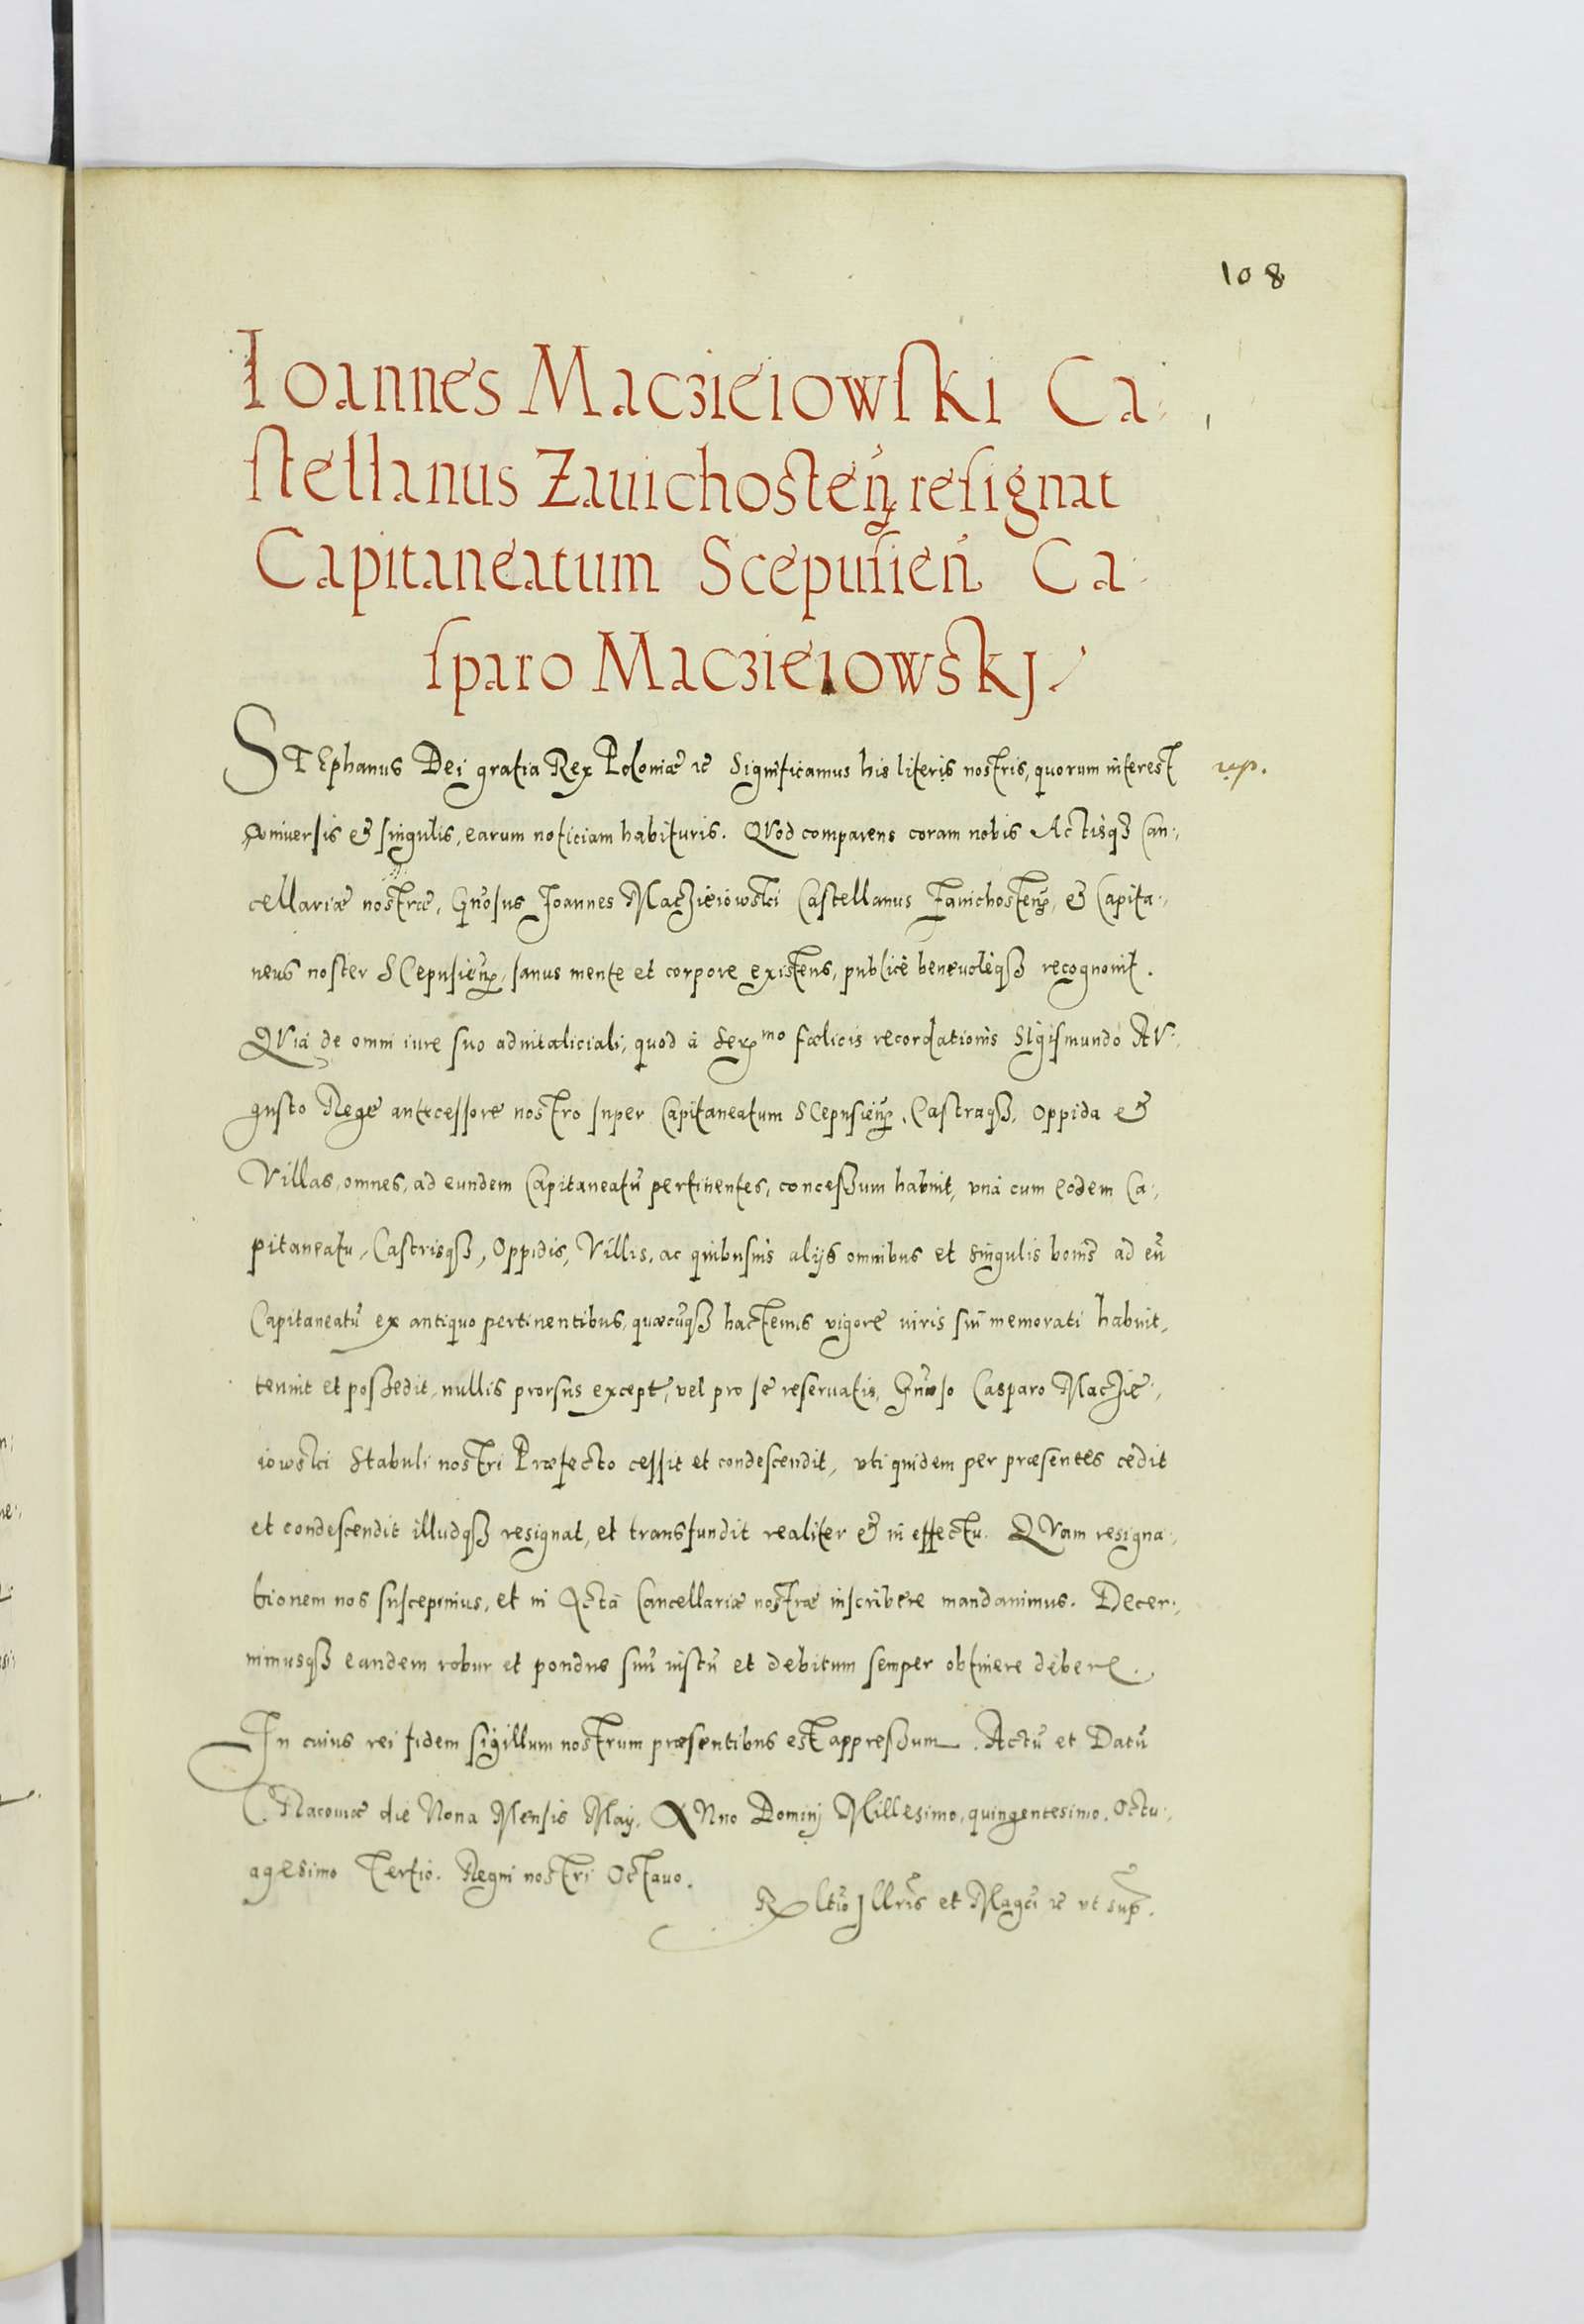 108
Ioannes Maczieiowski Ca-
stellanus Zauichosten̄ resignat
Capitaneatum Scepusien̄ Ca-
sparo Maczieiowskj.
STEphanus Dei gratia Rex Poloniæ etc Significamus his literis nostris, quorum interest
Vniuersis et singulis, earum noticiam habituris. QVod comparens coram nobis Actisq3 Can-
cellariæ nostræ, Gn̄osus Ioannes Maczieiowski Castellanus Zauichosten̄, et Capita-
neus noster SCepusien̄, sanus mente et corpore existens, publicè beneuoleq3 recognouit.
QVia de omni iure suo aduitaliciali, quod à Ser mo fœlicis recordationis SIgismundo AV-
gusto Rege antecessore nostro super Capitaneatum SCepusien̄, Castraq3, Oppida et
Villas, omnes, ad eundem Capitaneatū pertinentes, concessum habuit, vnà cum eodem Ca-
pitaneatu, Castrisq3, Oppidis, Villis, ac quibusuis alijs omnibus et singulis bonis ad eū
Capitaneatū ex antiquo pertinentibus, quæcūq3 hactenus vigore iuris sui memorati habuit,
tenuit et possedit, nullis prorsus except, vel pro se reseruatis, Gn̄oso Casparo Maczie-
iowski Stabuli nostri Præfecto cessit et condescendit, vti quidem per præsentes cedit
et condescendit illudq3 resignat, et transfundit realiter et in effectu. QVam resigna-
tionem nos suscepimus, et in Acta Cancellariæ nostræ inscribere mandauimus. Decer-
nimusq3 eandem robur et pondus suū iustū et debitum semper obtinere debere.
In cuius rei fidem sigillum nostrum præsentibus est appressum. Actū et Datū
CRacouiæ die Nona Mensis Maij, ANno Dominj Millesimo, quingentesimo, Octu-
agesimo Tertio. Regni nostri Octauo.
Rltio Illris et Magci etc vt sup.